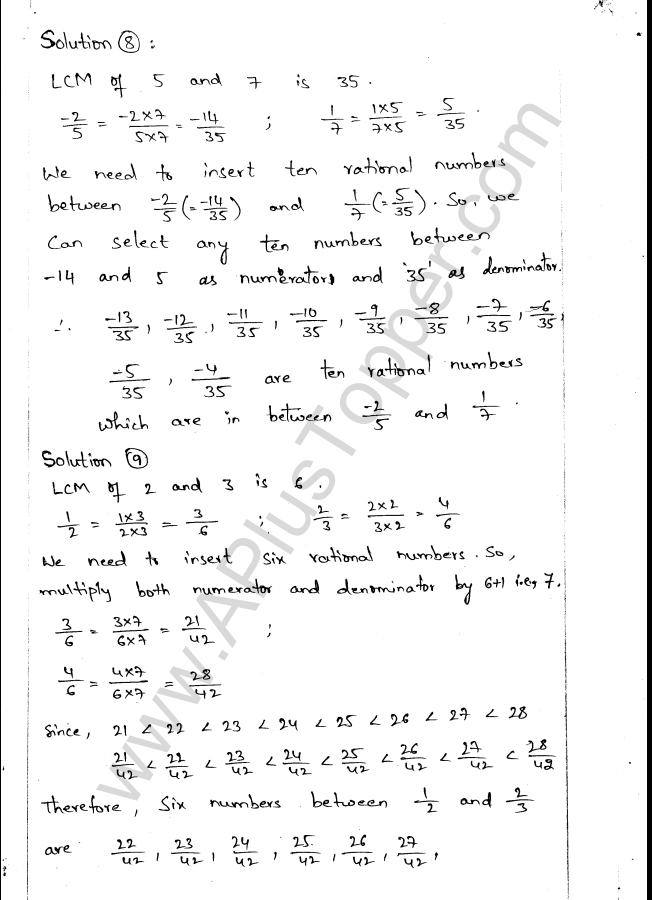 Solution ⑧ :
LCM of 5 and 7 is 35.
-2/5 = -2×7/5×7 = -14/35 ; 1/7 = 1×5/7×5 = 5/35.
We need to insert ten rational numbers
between -2/5 (= -14/35) and 1/7 (= 5/35). So, we
Can select any ten numbers between
-14 and 5 as numerators and '35' as denominator.
∴ -13/35, -12/35, -11/35, -10/35, -9/35, -8/35, -7/35, -6/35,
-5/35, -4/35 are ten rational numbers
which are in between -2/5 and 1/7.
Solution ⑨
LCM of 2 and 3 is 6.
1/2 = 1×3/2×3 = 3/6 ; 2/3 = 2×2/3×2 = 4/6
We need to insert six rational numbers. So,
multiply both numerator and denominator by 6+1 i.e, 7.
3/6 = 3×7/6×7 = 21/42 ;
4/6 = 4×7/6×7 = 28/42
Since, 21 < 22 < 23 < 24 < 25 < 26 < 27 < 28
21/42 < 22/42 < 23/42 < 24/42 < 25/42 < 26/42 < 27/42 < 28/42
Therefore, Six numbers between 1/2 and 2/3
are 22/42, 23/42, 24/42, 25/42, 26/42, 27/42,
www.APlusTopper.com